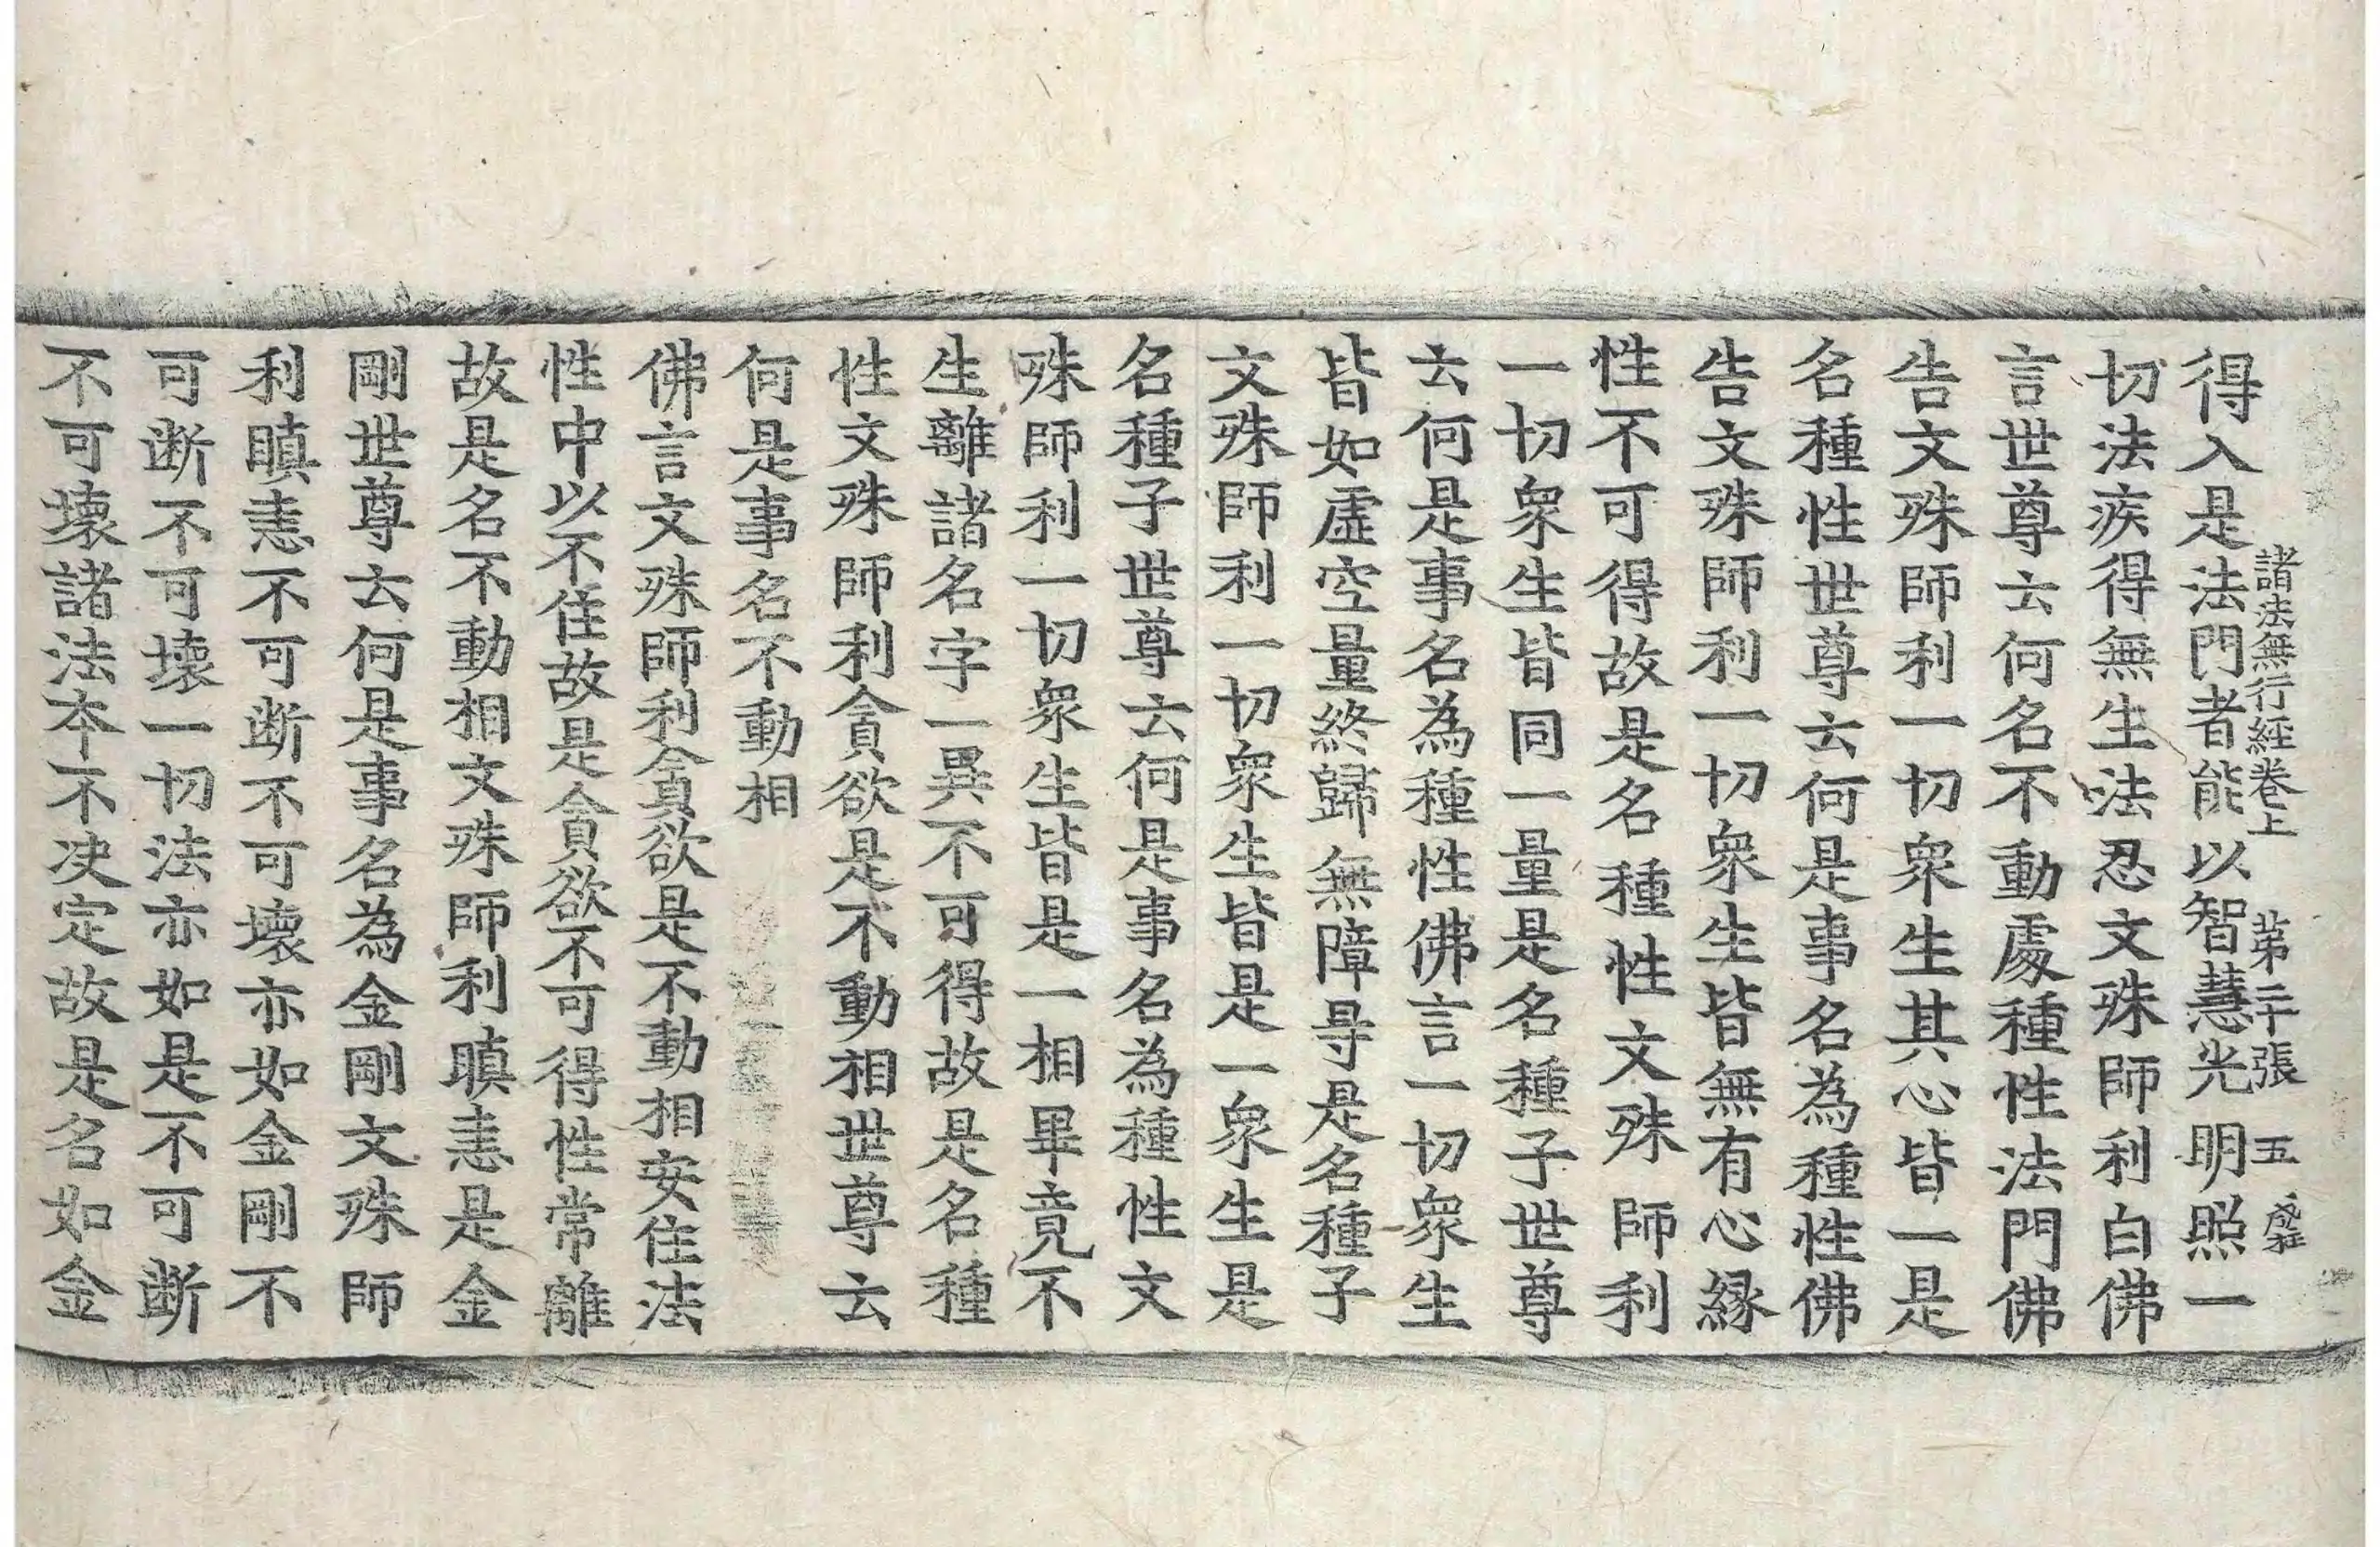 諸法無行經卷上 第二十張 五
得入是法門者能以智慧光明照一
切法疾得無生法忍文殊師利白佛
言世尊云何名不動處種性法門佛
告文殊師利一切衆生其心皆一是
名種性世尊云何是事名為種性佛
告文殊師利一切衆生皆無有心緣
性不可得故是名種性文殊師利
一切衆生皆同一量是名種子世尊
云何是事名為種性佛言一切衆生
皆如虛空量終歸無障㝵是名種子
文殊師利一切衆生皆是一衆生是
名種子世尊云何是事名為種性文
殊師利一切衆生皆是一相畢竟不
生離諸名字一異不可得故是名種
性文殊師利貪欲是不動相世尊云
何是事名不動相
佛言文殊師利貪欲是不動相安住法
性中以不住故是貪欲不可得性常離
故是名不動相文殊師利瞋恚是金
剛世尊云何是事名為金剛文殊師
利瞋恚不可断不可壞亦如金剛不
可断不可壞一切法亦如是不可断
不可壞諸法本不决定故是名如金